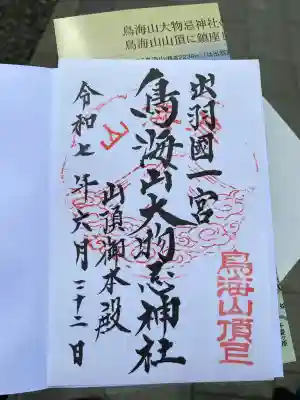 鳥海山大物忌神社
鳥海山山頂に鎮座
出羽國一宮
鳥海山大物忌神社
山頂御本殿
令和七年六月二十二日
鳥海山頂